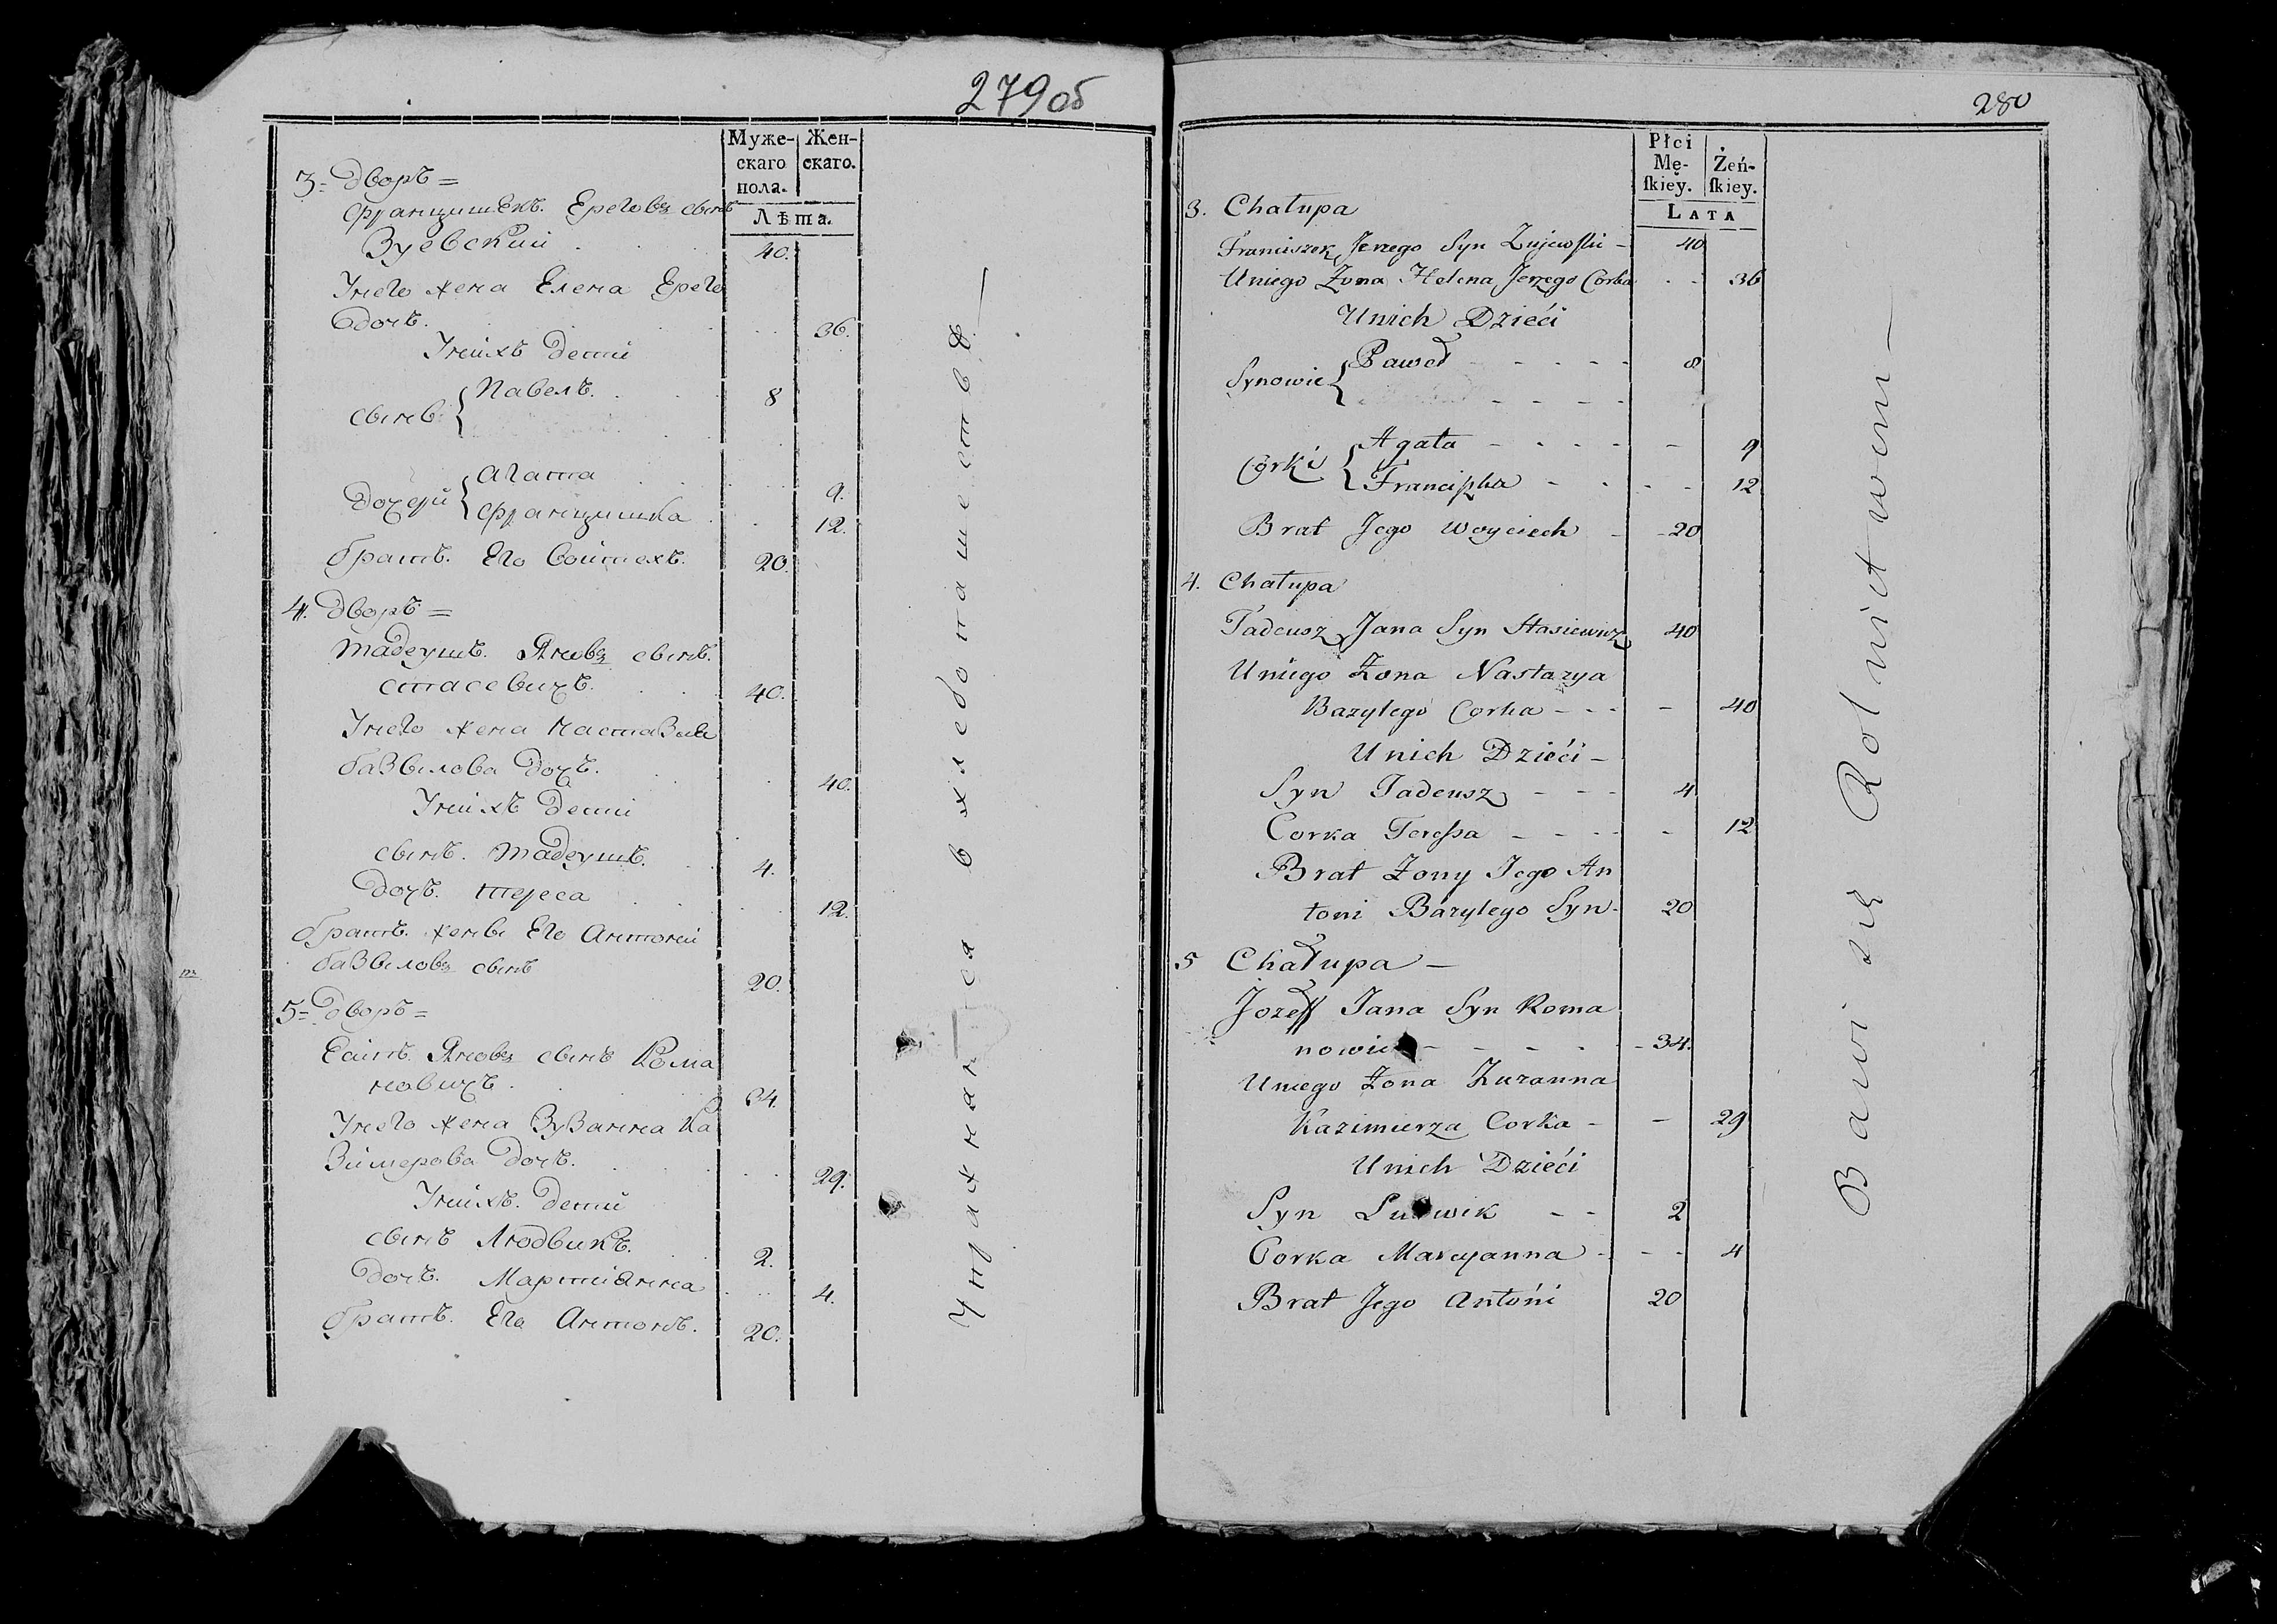 279об
Муже-
скаго
пола.
Жен-
скаго.
Лѣта.
3= Дворъ =
Францишекъ. Ереговъ сынъ
Зуевский 40.
Унего жена Елена Ерего
Дочь. 36.
Унихъ Дети
сынъ { Павелъ. 8
Дочери { Агата 9.
Францишка 12.
братъ. Его Войтехъ. 20.
4. Дворъ =
Тадеушъ. Яновъ сынъ.
стасевичъ. 40.
Унего жена Настазия
базылова дочь. 40.
Унихъ Дети
сынъ. Тадеушъ. 4.
Дочь. тереса 12.
братъ. жены Его Антоний
базыловъ сынъ 20.
5= Дворъ =
Яновъ сынъ Рома
новичъ. 34.
Унего жена Зузанна Ка
зимерова дочь. 29.
Унихъ. Дети
сынъ Людвикъ. 2.
Дочь. 4.
братъ. Его Антонъ. 20.
Упражняются в хлебопашестве. —
280
Płci
Mę-
ſkiey.
Żeń-
ſkiey.
LATA
3. Chałupa
Franciszek Jerzego Syn Zujewski - 40
Uniego Żona Helena Jerzego Corka - - 36
Unich Dzieći
Synowie { Paweł - - - - - 8
Corki { Agata - - - - - 9
Franciszka - - - - 12
Brat Jego Woyciech - - 20
4. Chałupa
Tadeusz Jana Syn Stasiewicz 40
Uniego Żona Nastazya
Bazylego Corka - - - - 40
Unich Dzieći -
Syn Tadeusz - - - 4
Corka Teressa - - - - - 12
Brat Żony Jego An
toni Bazylego Syn - 20
5 Chałupa —
Jozeff Jana Syn Roma
nowicz - - - - - - 34.
Uniego Żona Zuzanna
Kazimierza Corka - - 29
Unich Dzieći
Syn Ludwik - - 2
Corka Maryanna - - - 4
Brat Jego Antońi 20
Bawi się Rolnictwem —